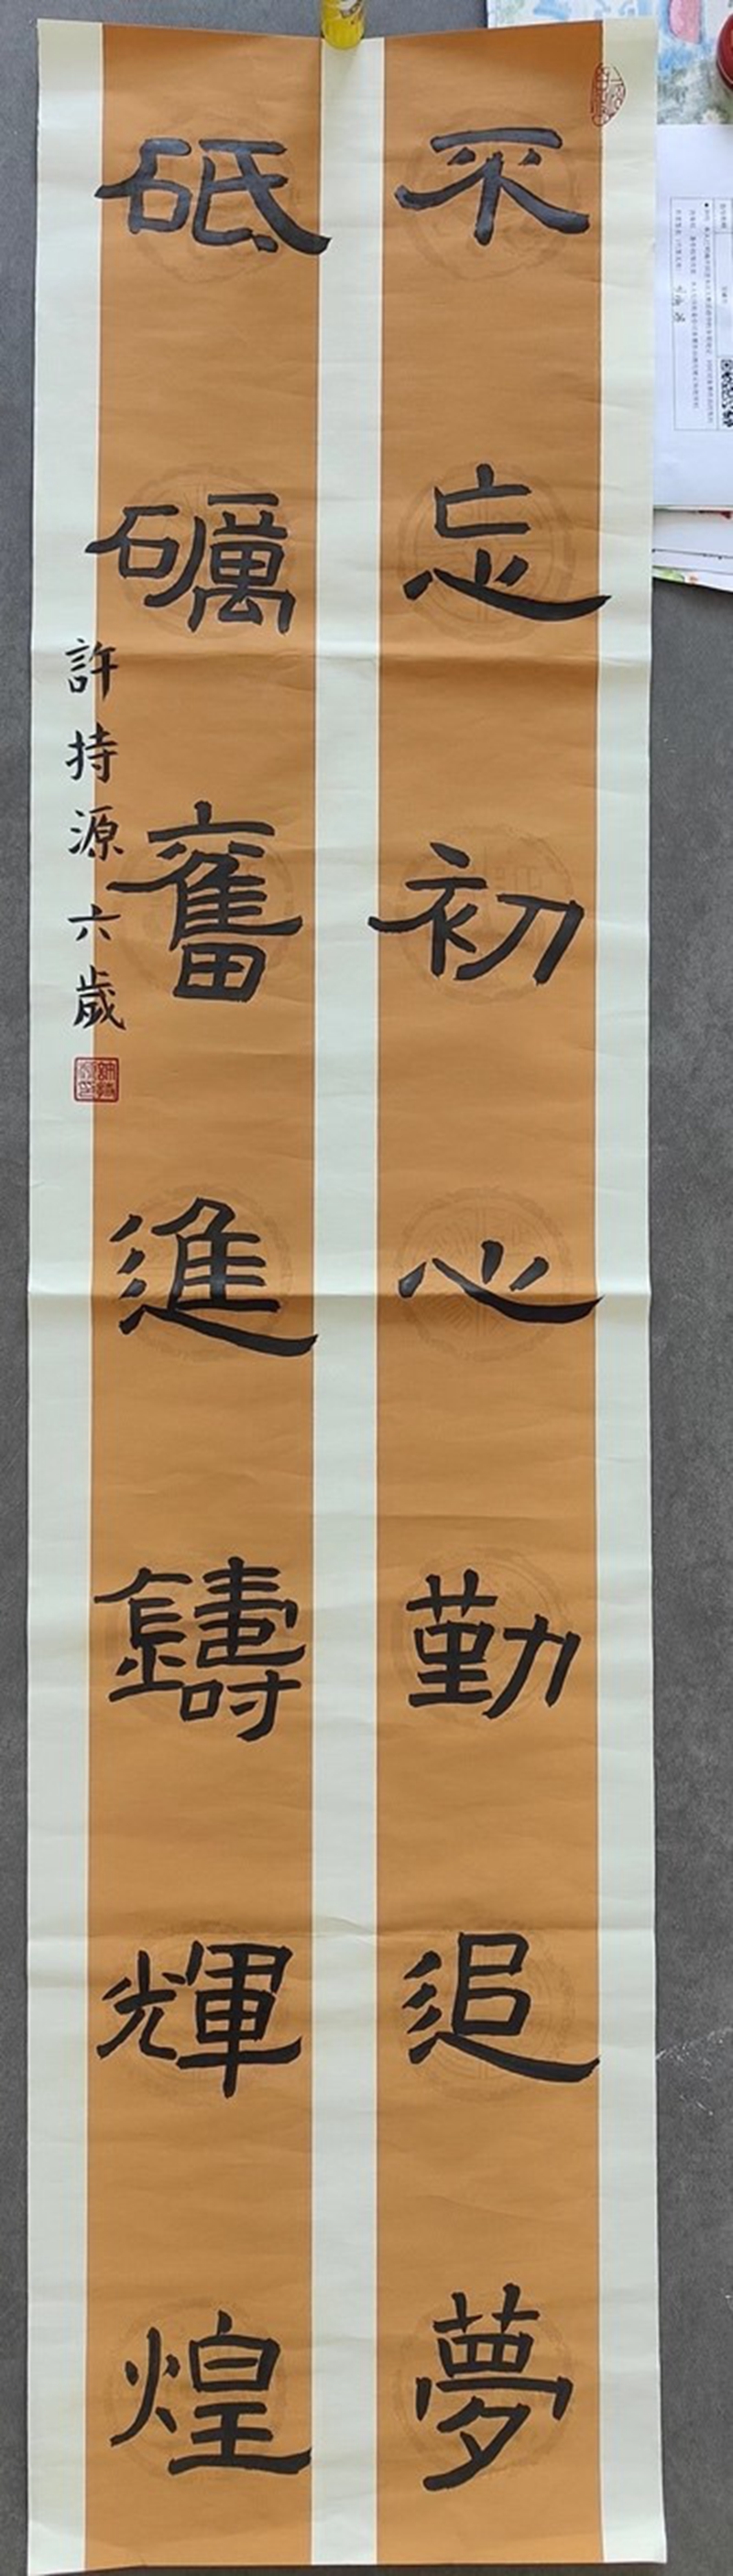 不忘初心勤追夢
砥礪奮進鑄輝煌
許持源六歲